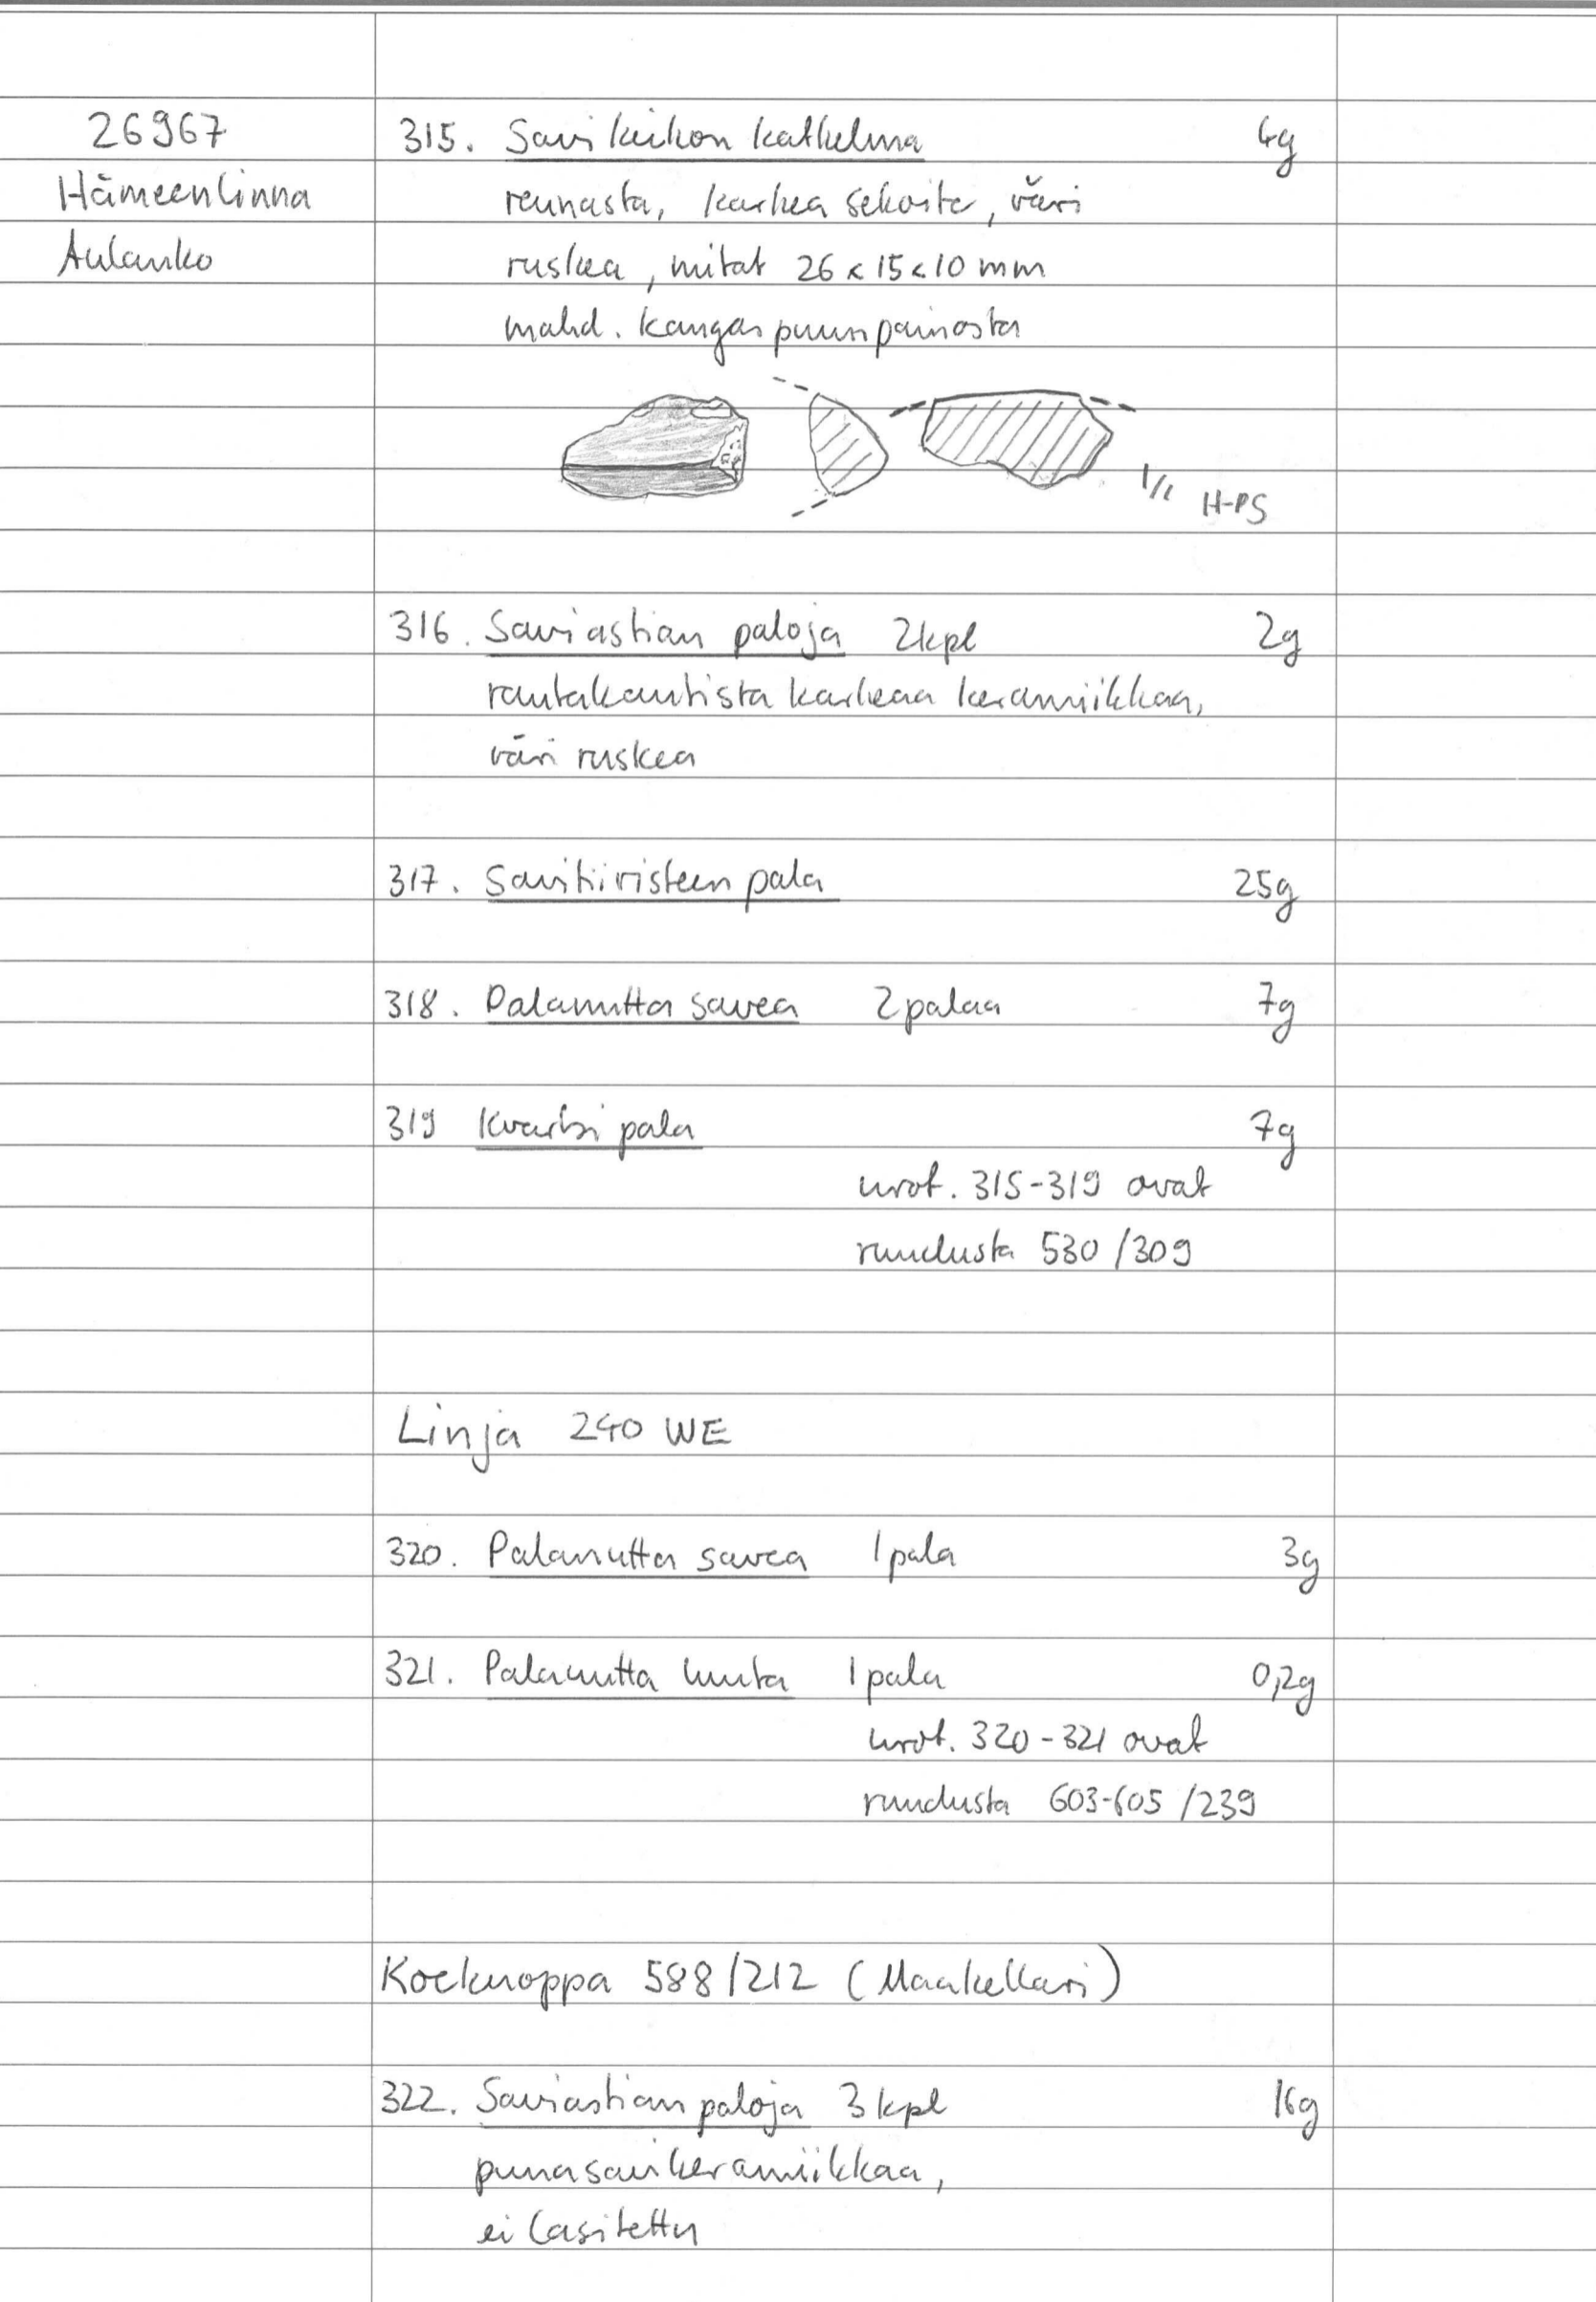 26967
Hämeenlinna
Aulanko
315. Savikiekon katkelma 4g
reunasta, karkea sekoite, väri
ruskea, mitat 26 x 15 x 10 mm
mahd. kangaspuun painosta
1/1 H-PS
316. Saviastian paloja 2kpl 2g
rautakautista karkeaa keramiikkaa,
väri ruskea
317. Savitiivisteen pala 25g
318. Palanutta savea 2 palaa 7g
319 Kvartsi pala 7g
nrot. 315-319 ovat
ruudusta 530/309
Linja 240 WE
320. Palanutta savea 1 pala 3g
321. Palanutta luuta 1 pala 0,2g
nrot. 320-321 ovat
ruudusta 603-605/239
Koekuoppa 588/212 (Maakellari)
322. Saviastian paloja 3 kpl 16g
punasavikeramiikkaa,
ei lasitettu